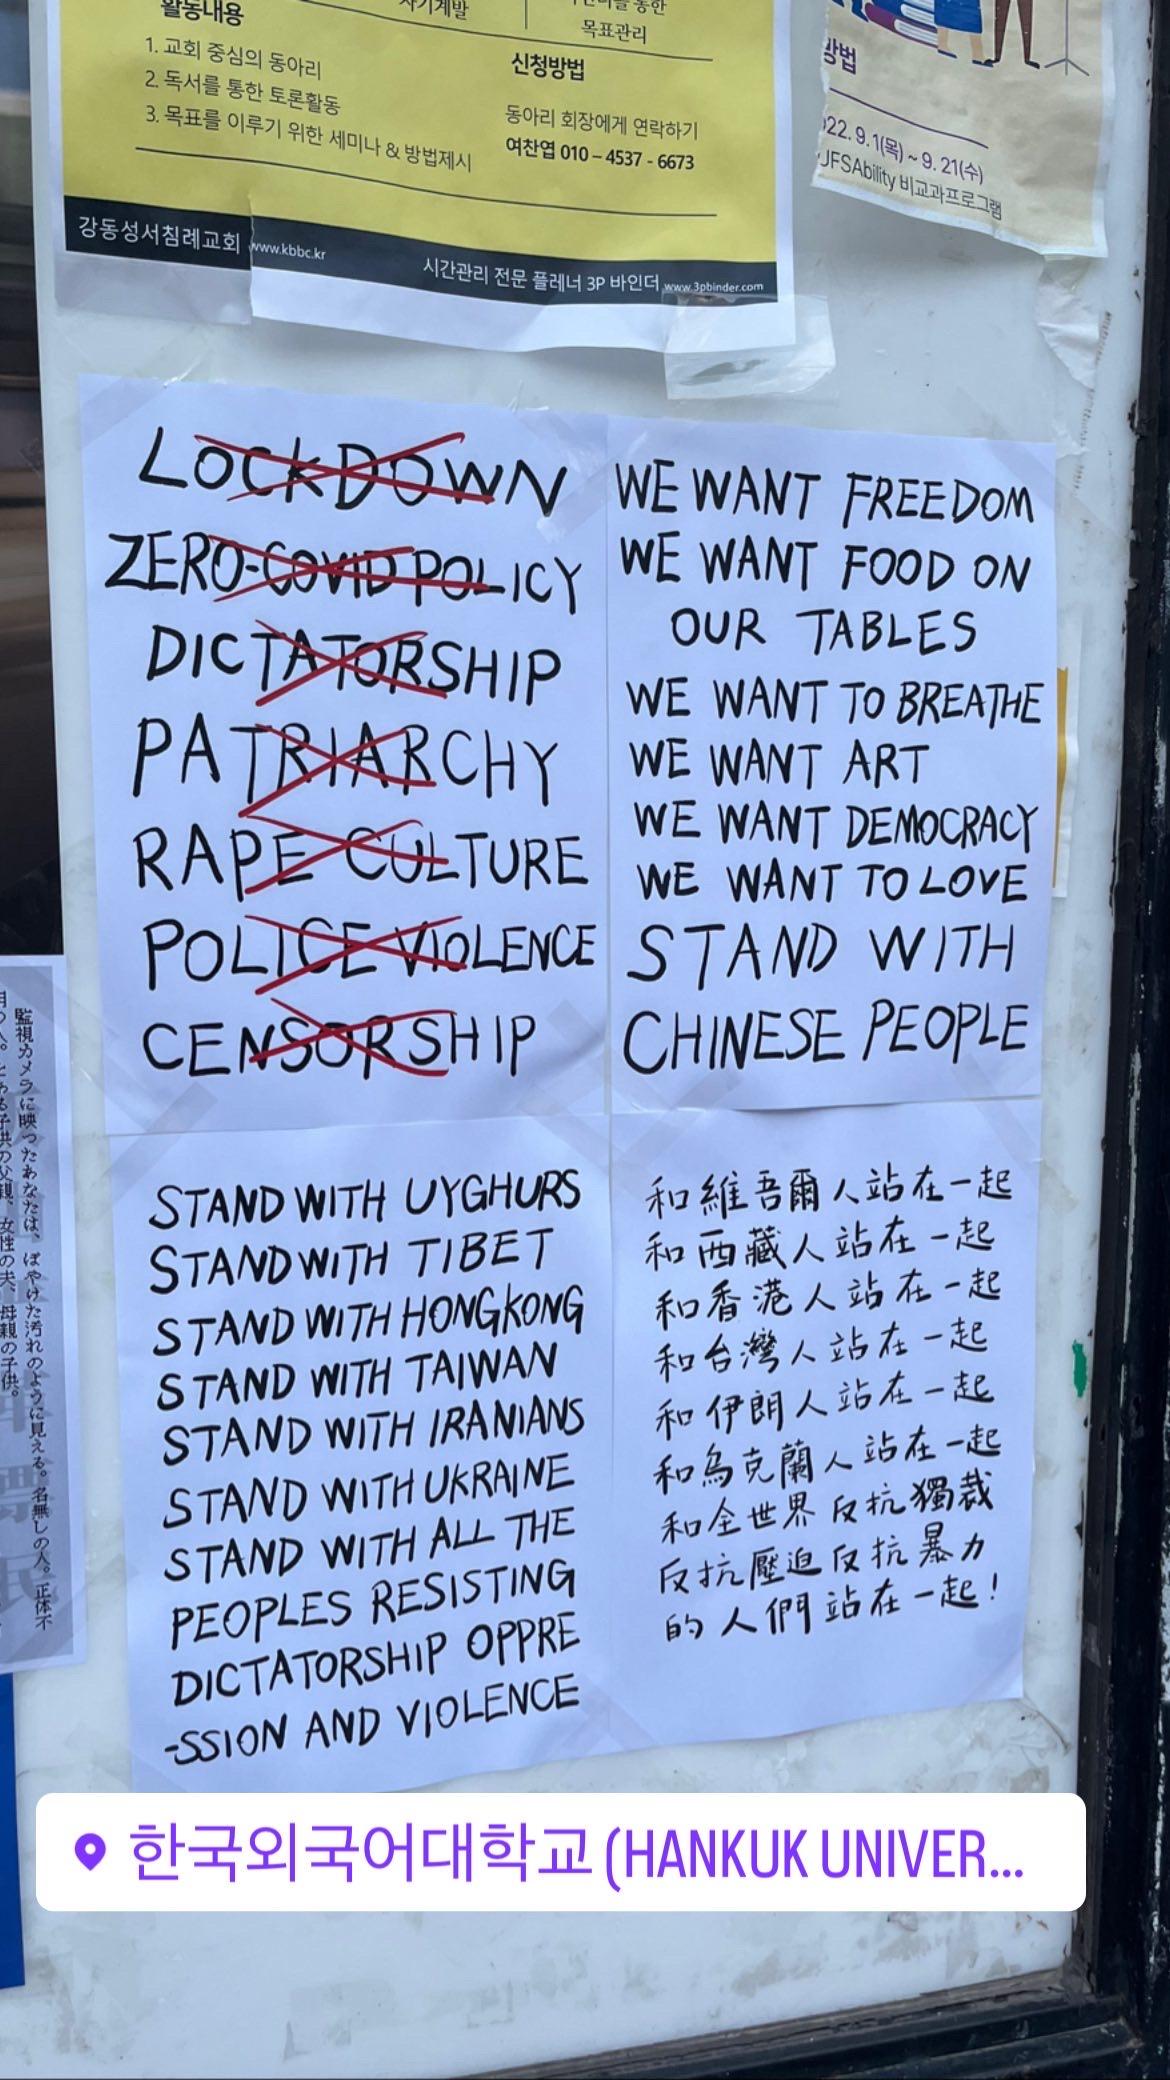 활동내용
1. 교회 중심의 동아리
2. 독서를 통한 토론활동
3. 목표를 이루기 위한 세미나 & 방법제시
자기계발
통한
목표관리
신청방법
동아리 회장에게 연락하기
여찬엽 010 – 4537 - 6673
강동성서침례교회 www.kbbc.kr
시간관리 전문 플레너 3P 바인더 www.3pbinder.com
방법
22. 9. 1(목) ~ 9. 21(수)
UFSAbility 비교과프로그램
LOCKDOWN
ZERO-COVID POLICY
DICTATORSHIP
PATRIARCHY
RAPE CULTURE
POLICE VIOLENCE
CENSORSHIP
WE WANT FREEDOM
WE WANT FOOD ON
OUR TABLES
WE WANT TO BREATHE
WE WANT ART
WE WANT DEMOCRACY
WE WANT TO LOVE
STAND WITH
CHINESE PEOPLE
STAND WITH UYGHURS
STAND WITH TIBET
STAND WITH HONGKONG
STAND WITH TAIWAN
STAND WITH IRANIANS
STAND WITH UKRAINE
STAND WITH ALL THE
PEOPLES RESISTING
DICTATORSHIP OPPRE
-SSION AND VIOLENCE
和維吾爾人站在一起
和西藏人站在一起
和香港人站在一起
和台灣人站在一起
和伊朗人站在一起
和烏克蘭人站在一起
和全世界反抗獨裁
反抗壓迫反抗暴力
的人們站在一起！
監視カメラに映ったあなたは、ぼやけた汚れのように見える。名無しの人。正体不
人。とある子供の父親、女性の夫、母親の子供。
한국외국어대학교 (HANKUK UNIVER...